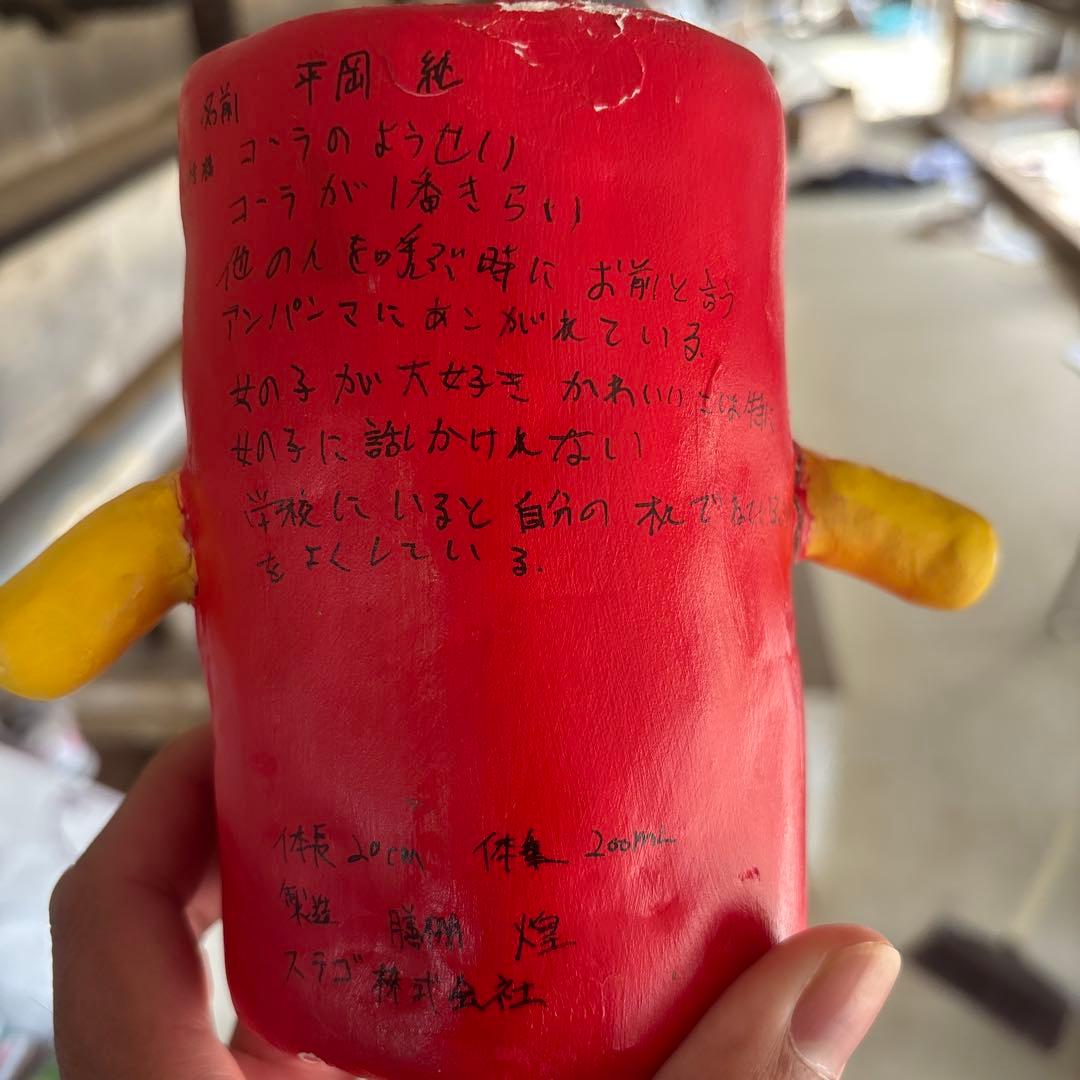 名前 平岡 純
コーラのようせい
コーラが1番きらい
他の人を呼ぶ時にお前と言う
アンパンマにあこがれている
女の子が大好き かわいい 特に
女の子に話しかけれない
学校にいると自分の机で
をよくしている.
体長20cm 体 200mL
製造 煌
スラゴ 株式会社